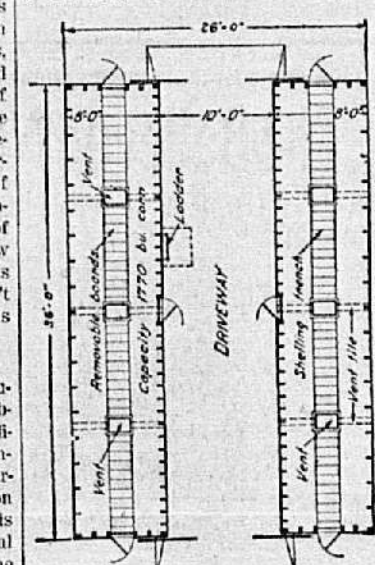 26'-0"
8'-0"
10'-0"
8'-0"
Vent
Ladder
Removable boards
Capacity 1770 bu. corn
DRIVEWAY
Shelling trench
36'-0"
Vent tile
Vent
Vent